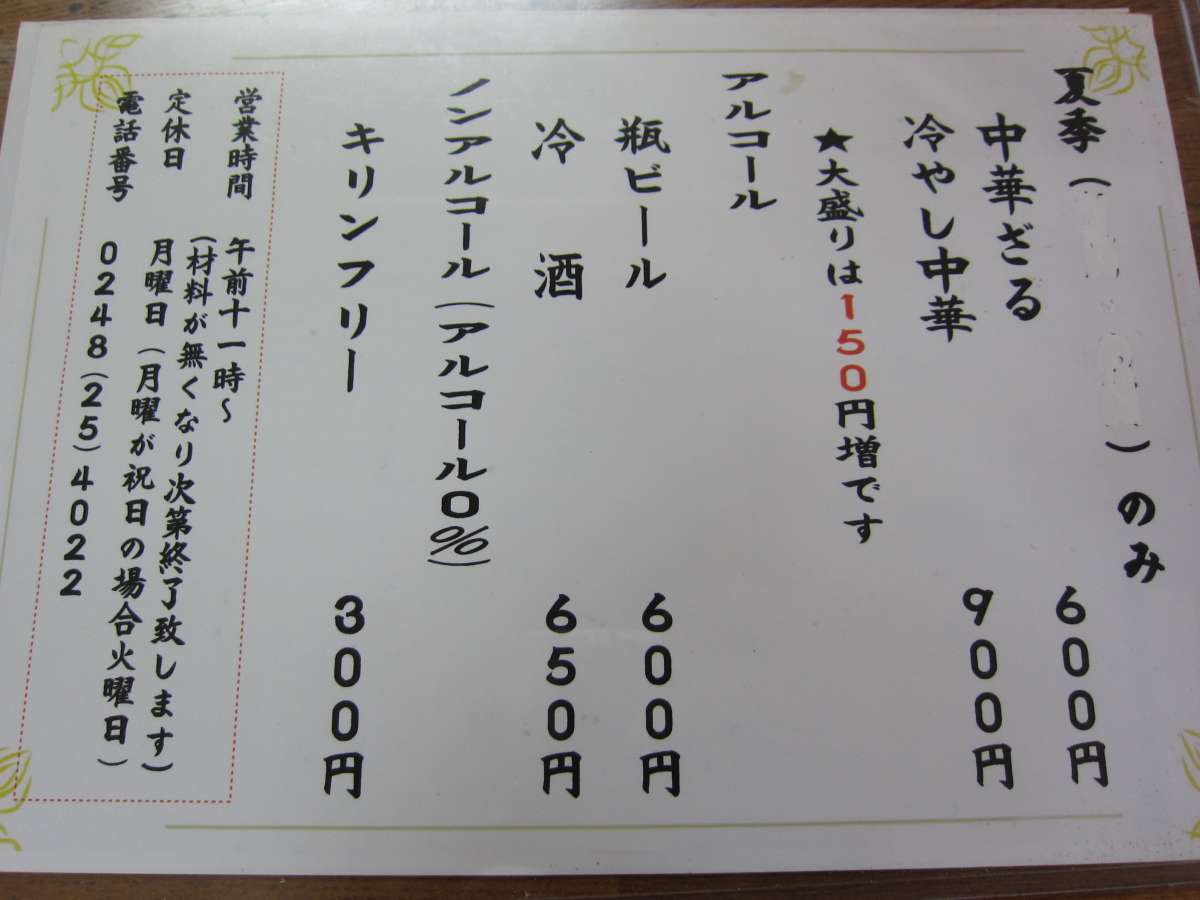 夏季（　　）のみ
中華ざる 600円
冷やし中華 900円
★大盛りは150円増です
アルコール
瓶ビール 600円
冷 酒 650円
ノンアルコール（アルコール0%）
キリンフリー 300円
営業時間 午前十一時～
（材料が無くなり次第終了致します）
定休日 月曜日（月曜が祝日の場合火曜日）
電話番号 0248（25）4022